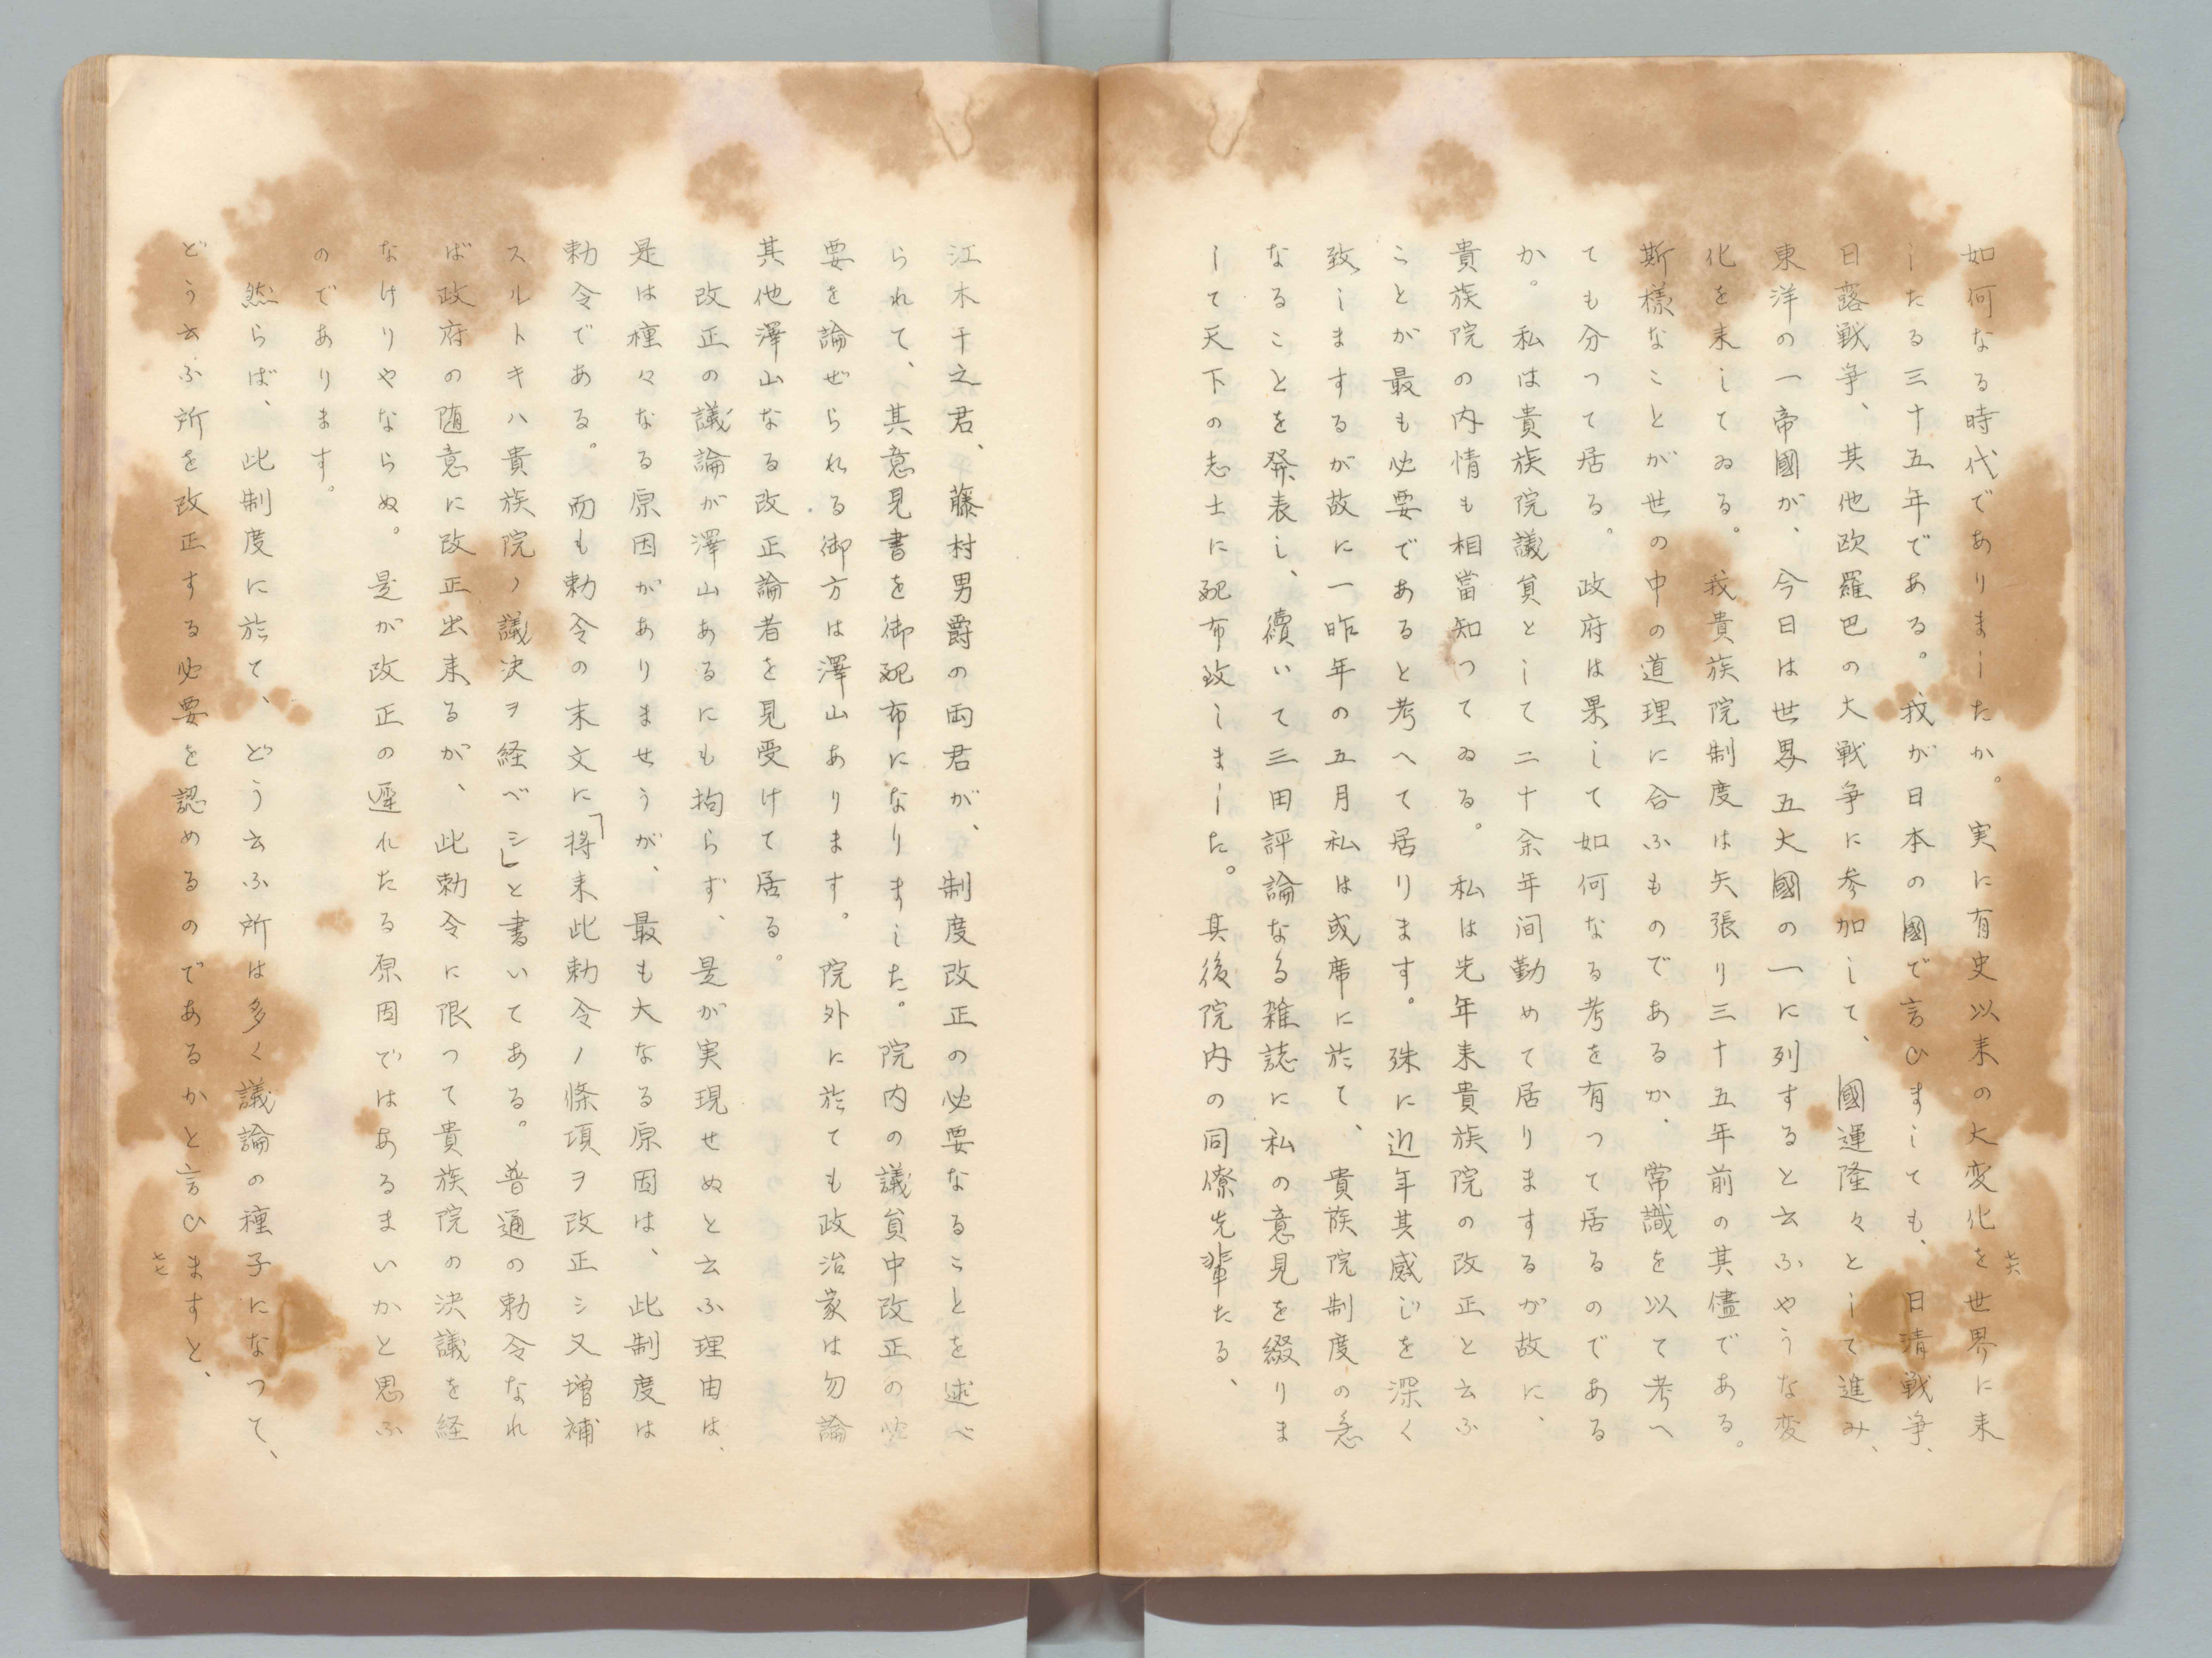 如何なる時代でありましたか。実に有史以来の大変化を世界に来
したる三十五年である。我が日本の國で言ひましても、日清戦争、
日露戦争、其他欧羅巴の大戦争に参加して、國運隆々として進み、
東洋の一帝國が、今日は世界五大國の一に列すると云ふやうな変
化を来してゐる。我貴族院制度は矢張り三十五年前の其儘である。
斯様なことが世の中の道理に合ふものであるか、常識を以て考へ
ても分つて居る。政府は果して如何なる考を有つて居るのである
か。私は貴族院議員として二十余年间勤めて居りまするが故に、
貴族院の内情も相當知つてゐる。私は先年来貴族院の改正と云ふ
ことが最も必要であると考へて居ります。殊に近年其感じを深く
致しまするが故に一昨年の五月私は或席に於て、貴族院制度の急
なることを発表し、續いて三田評論なる雑誌に私の意見を綴りま
して天下の志士に配布致しました。其後院内の同僚先輩たる、
七六
江木千之君、藤村男爵の両君が、制度改正の必要なることを述べ
られて、其意見書を御配布になりました。院内の議員中改正の必
要を論ぜられる御方は澤山あります。院外に於ても政治家は勿論
其他澤山なる改正論者を見受けて居る。
改正の議論が澤山あるにも拘らず、是が実現せぬと云ふ理由は、
是は種々なる原因がありませうが、最も大なる原因は、此制度は
勅令である。而も勅令の末文に「将来此勅令ノ條項ヲ改正シ又増補
スルトキハ貴族院ノ議决ヲ経ベシ」と書いてある。普通の勅令なれ
ば政府の随意に改正出来るが、此勅令に限つて貴族院の決議を経
なけりやならぬ。是が改正の遅れたる原因ではあるまいかと思ふ
のであります。
然らば、此制度に於て、どう云ふ所は多く議論の種子になつて、
どう云ふ所を改正する必要を認めるのであるかと言ひますと、
七七